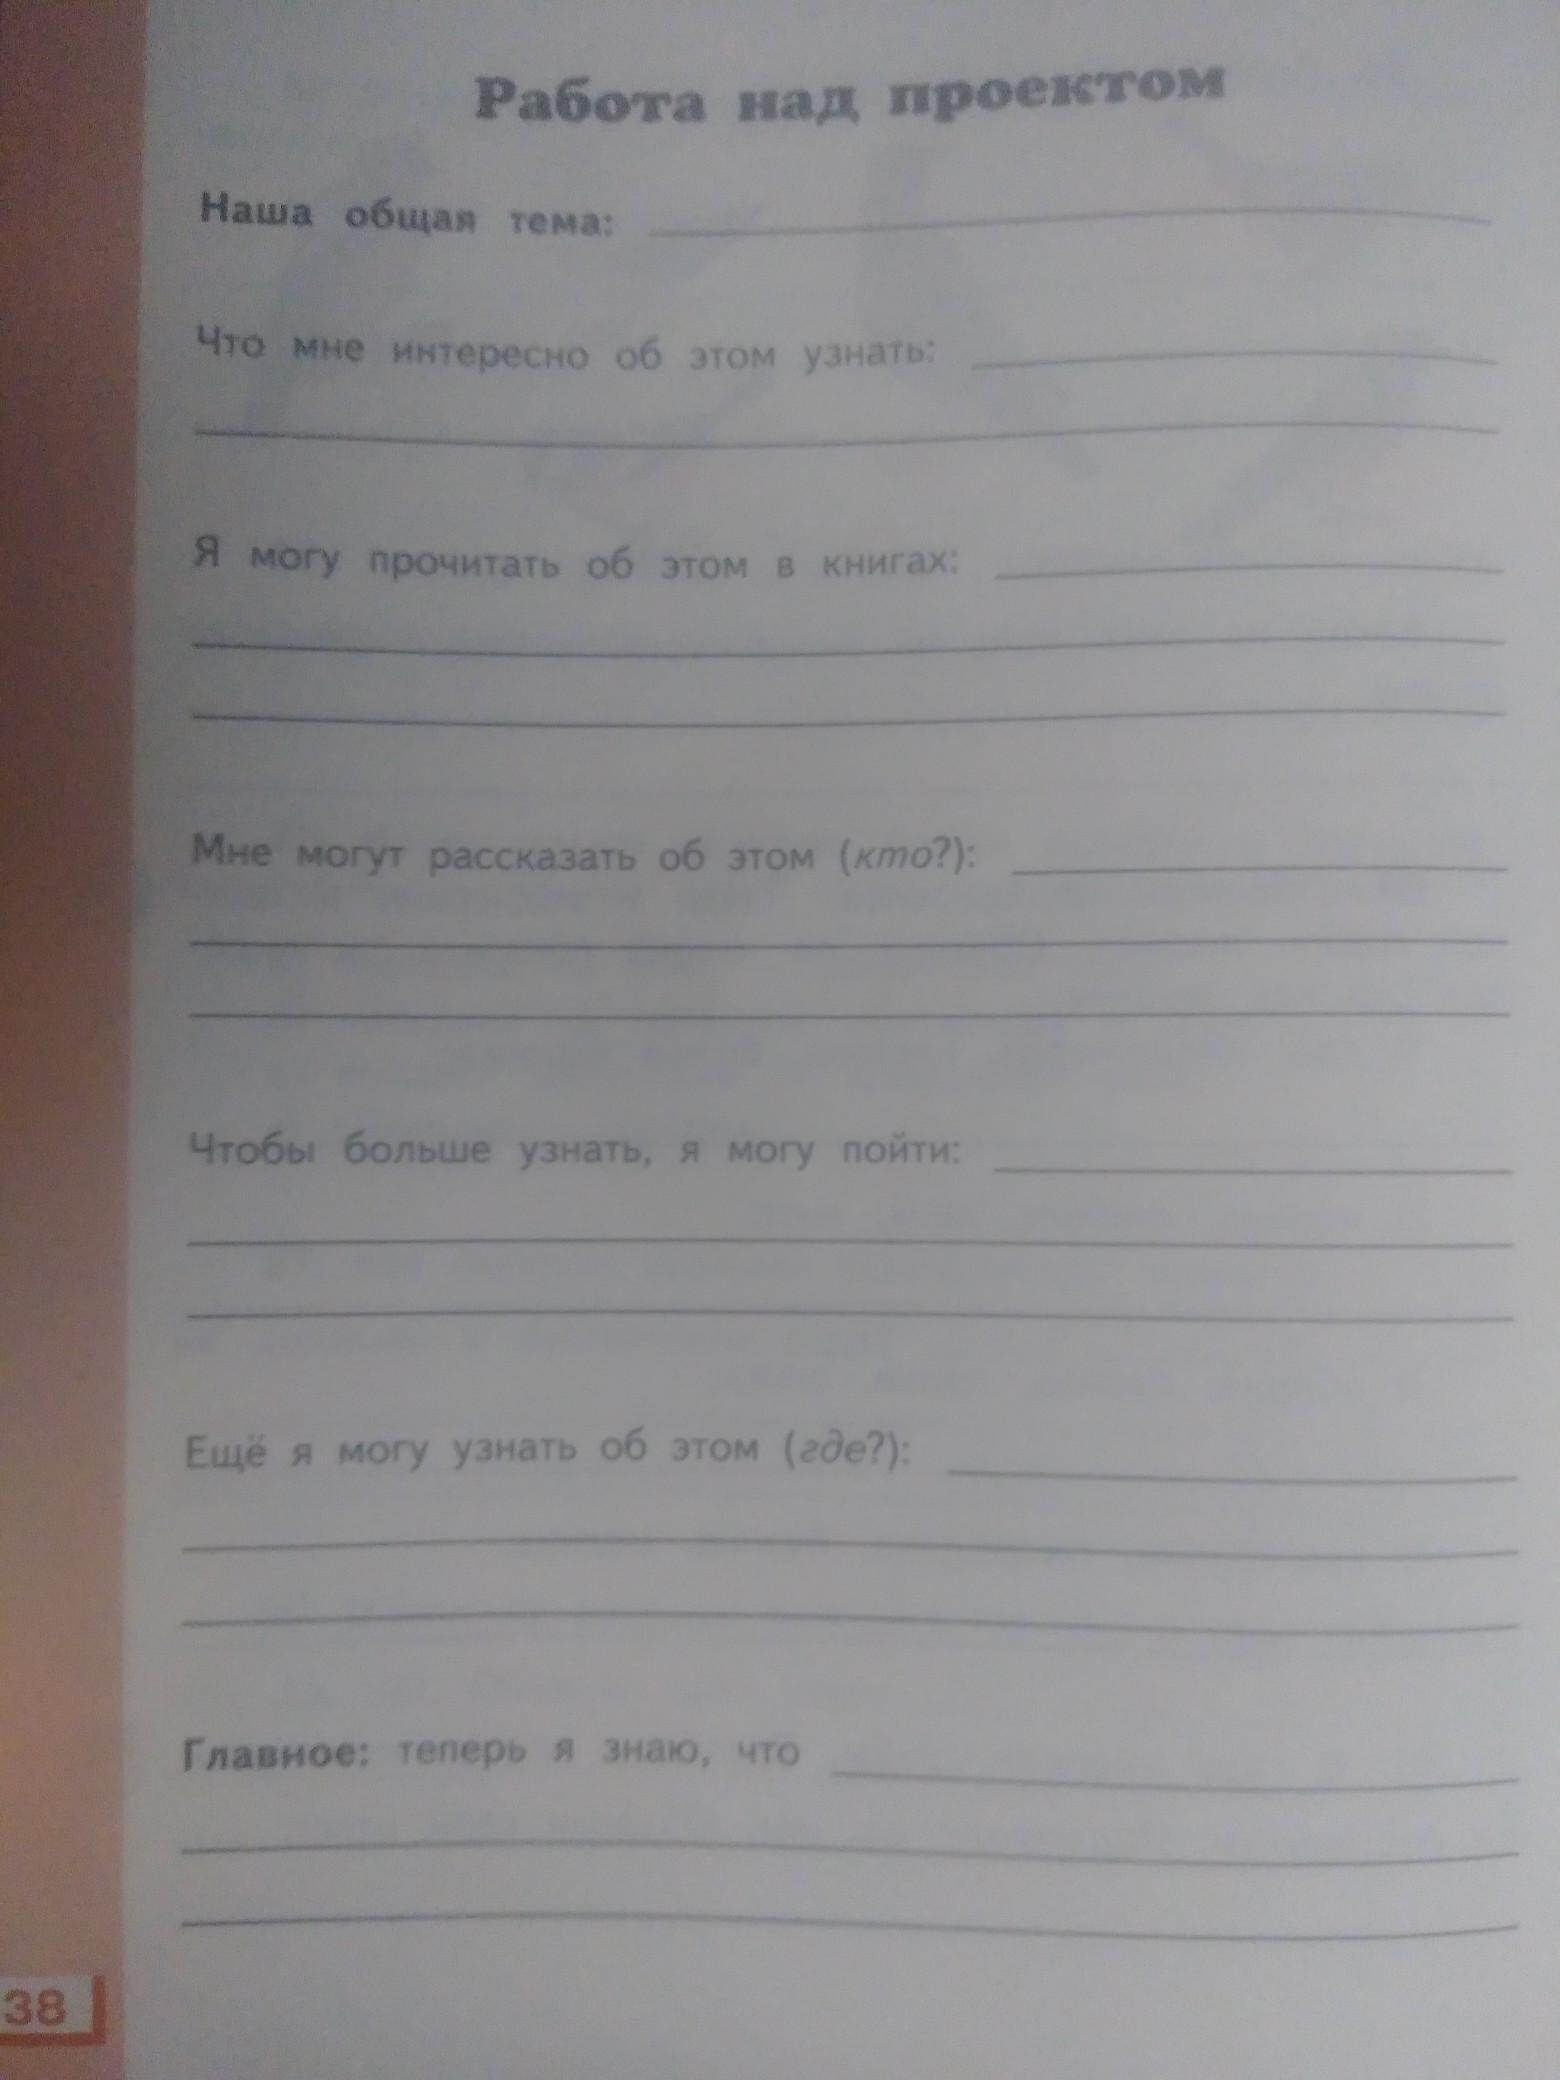 Работа над проектом
Наша общая тема:
Что мне интересно об этом узнать:
Я могу прочитать об этом в книгах:
Мне могут рассказать об этом (кто?):
Чтобы больше узнать, я могу пойти:
Ещё я могу узнать об этом (где?):
Главное: теперь я знаю, что
38